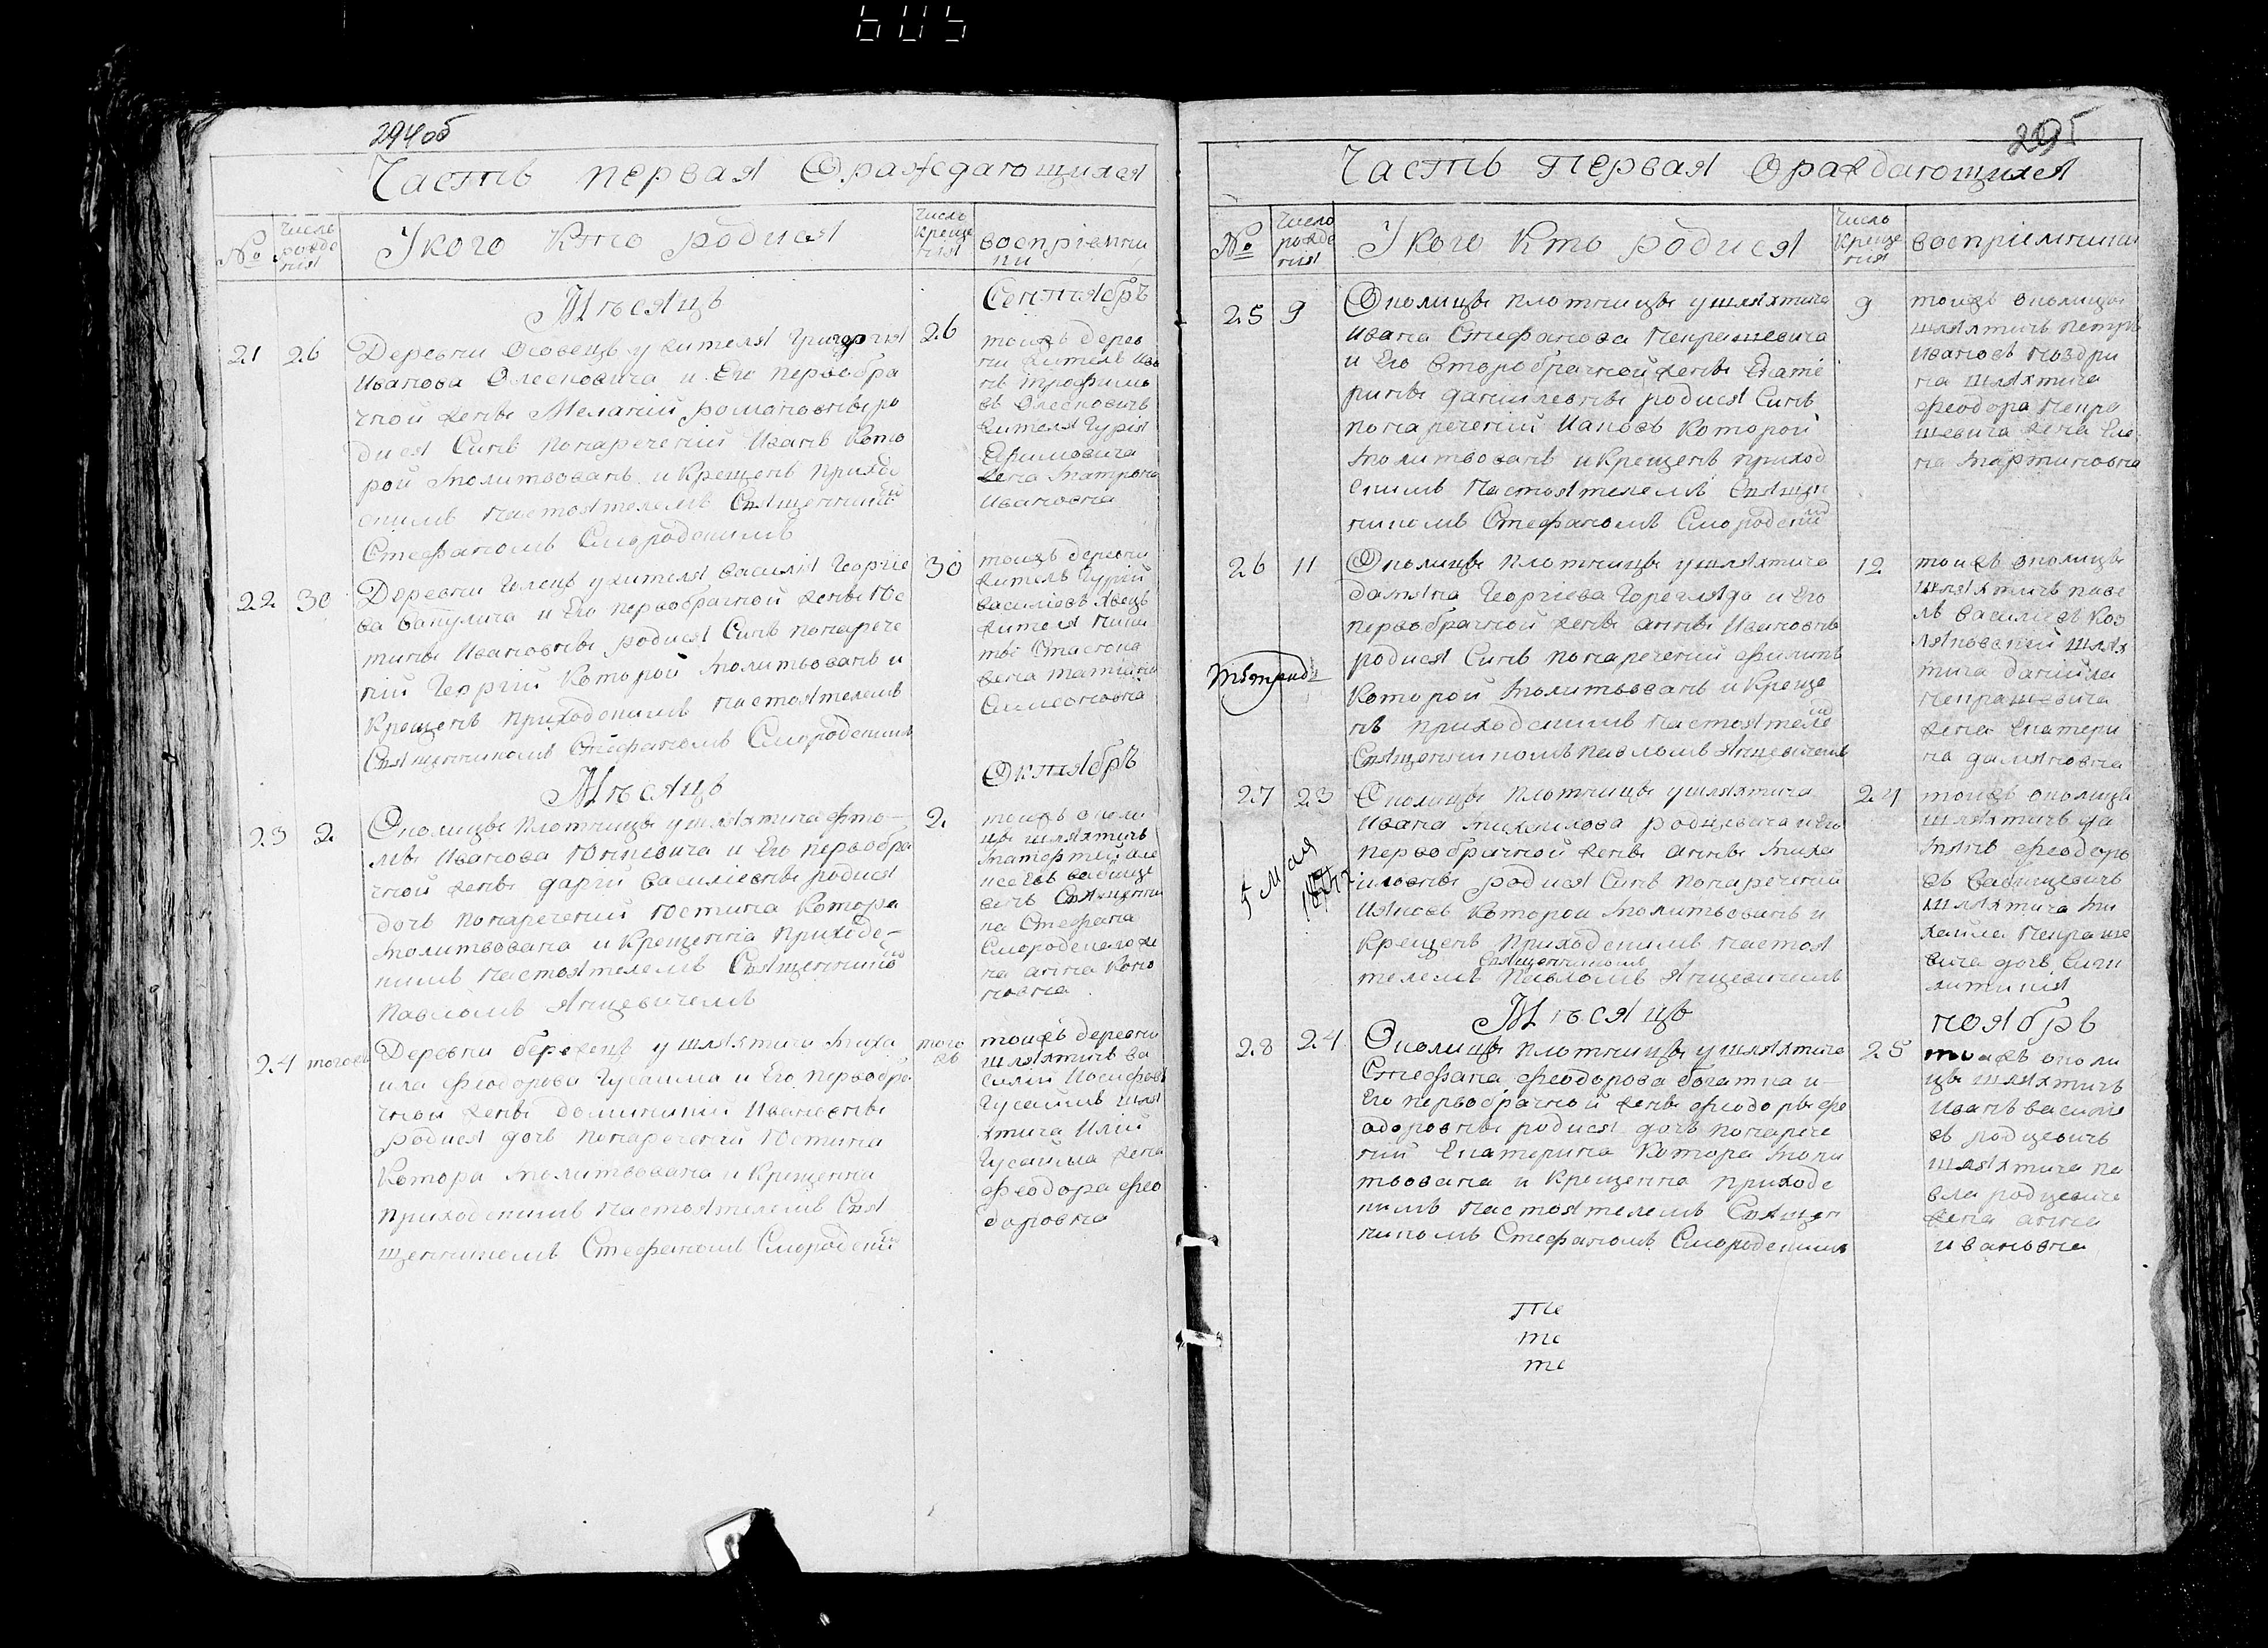 605
294 об
Часть первая Ораждающихся
№
Число рожде ния
У кого кто родися
Число Креще ния
восприемни ки
Мѣсяцъ
Сентябръ
21
26
Деревни Осовецъ у жителя Григория
Иванова Олесковича и Его первобра
чной женѣ Меланий романовнѣ ро
дися Синъ понареченій Иванъ Кото
рой молитвованъ и Крещенъ прихо
скимъ настоятелемъ Священни
Стефаномъ Смородскимъ
26
тоижъ дерев
ни житель Ива
нъ Трофимо
въ Олесковичъ
жителя Гурія
жена Матрона
Ивановна
22
30
Деревни у жителя василія Георгіе
ва и Его первобрачной женѣ Юс
тинѣ Ивановнѣ родися Синъ понарече
ній Георгій Которой молитвованъ и
Крещенъ приходскимъ настоятелемъ
Священникомъ Стефаномъ Смородскимъ
30
тоижъ деревни
житель Гурій
василіевъ
жителя
жена
Симеоновна
Мѣсяцъ
Октябръ
23
2
Околицѣ Плотницѣ у шляхтича Фто-
мѣ Иванова Юнцевича и Его первобра
чной женѣ дарій василіевнѣ родися
дочь понареченій Юстина Котора
молитвована и Крещенна приходс-
кимъ настоятелемъ Священни
Павломъ Янцевичемъ
2
тоижъ околи
цѣ шляхтичъ
Священни
ка Стефана
Смородскаго же
на анна Коно
новна
24
тогожъ
Деревни бережецъ у шляхтича Миха
ила Феодорова Гусаима и Его первобра
чной женѣ доминикии Ивановнѣ
родися дочь понареченій Юстина
Котора молитвована и Крещенна
приходскимъ настоятелемъ Свя
щенникомъ Стефаномъ Смородский
того жъ
тоижъ деревни
шляхтичъ ва
силий Иосифовъ
Гусаимъ шля
хтича Илій
Гусаима жена
феодора фео
доровна
295
Часть первая Ораждающихся
№
Число рожде ния
У кого кто родися
Число Креще ния
восприемники
25
9
Околицѣ Плотницѣ у шляхтича
Ивана Стефанова Некрашевича
и Его второбрачной женѣ Екате
ринѣ даниилевнѣ родися Синъ
понареченій Иаковъ Которой
молитвованъ и Крещенъ приход
скимъ настоятелемъ Священ
никомъ Стефаномъ Смородский
9
тоижъ околицѣ
шляхтичъ петръ
Ивановъ Ноздри
на шляхтича
феодора Некра
шевича жена Еле
на Мартиновна
26
11
Околицѣ Плотницѣ у шляхтича
дамяна Георгіева Горегляда и Его
первобрачной женѣ аннѣ Ивановнѣ
родися Синъ понареченій Филипъ
Которой молитвованъ и Креще
нъ приходскимъ настоятеле
Священникомъ Павломъ Янцевичемъ
12
тоижъ околицѣ
шляхтичъ паве
лъ василіевъ Коз
ляковский шлях
тича даниила
Некрашевича
жена Екатери
на дамяновна
27
23
5 Мая
Околицѣ Плотницѣ у шляхтича
Ивана Михаилова родцевича и Его
первобрачной женѣ аннѣ Миха
иловнѣ родися Синъ понареченій
Ияковъ Которои молитвованъ и
Крещенъ приходскимъ настоя
Священникомъ
телемъ Павломъ Янцевичемъ
24
тоижъ околицѣ
шляхтичъ да
мянъ феодоро
въ
шляхтича ми
хаила Некраше
вича дочь
Мѣсяцъ
ноябръ
28
24
Околицѣ Плотницѣ у шляхтича
Стефана феодорова богатка и
Его первобрачной женѣ феодорѣ фе
одоровнѣ родися дочь понарече
ній Екатерина Котора моли
твована и Крещенна приходс
кимъ настоятелемъ Священ
никомъ Стефаномъ Смородскимъ
25
тоижъ околи
цѣ шляхтичъ
Иванъ василіе
въ родцевичъ
шляхтича па
вла родцевича
жена анна
ивановна